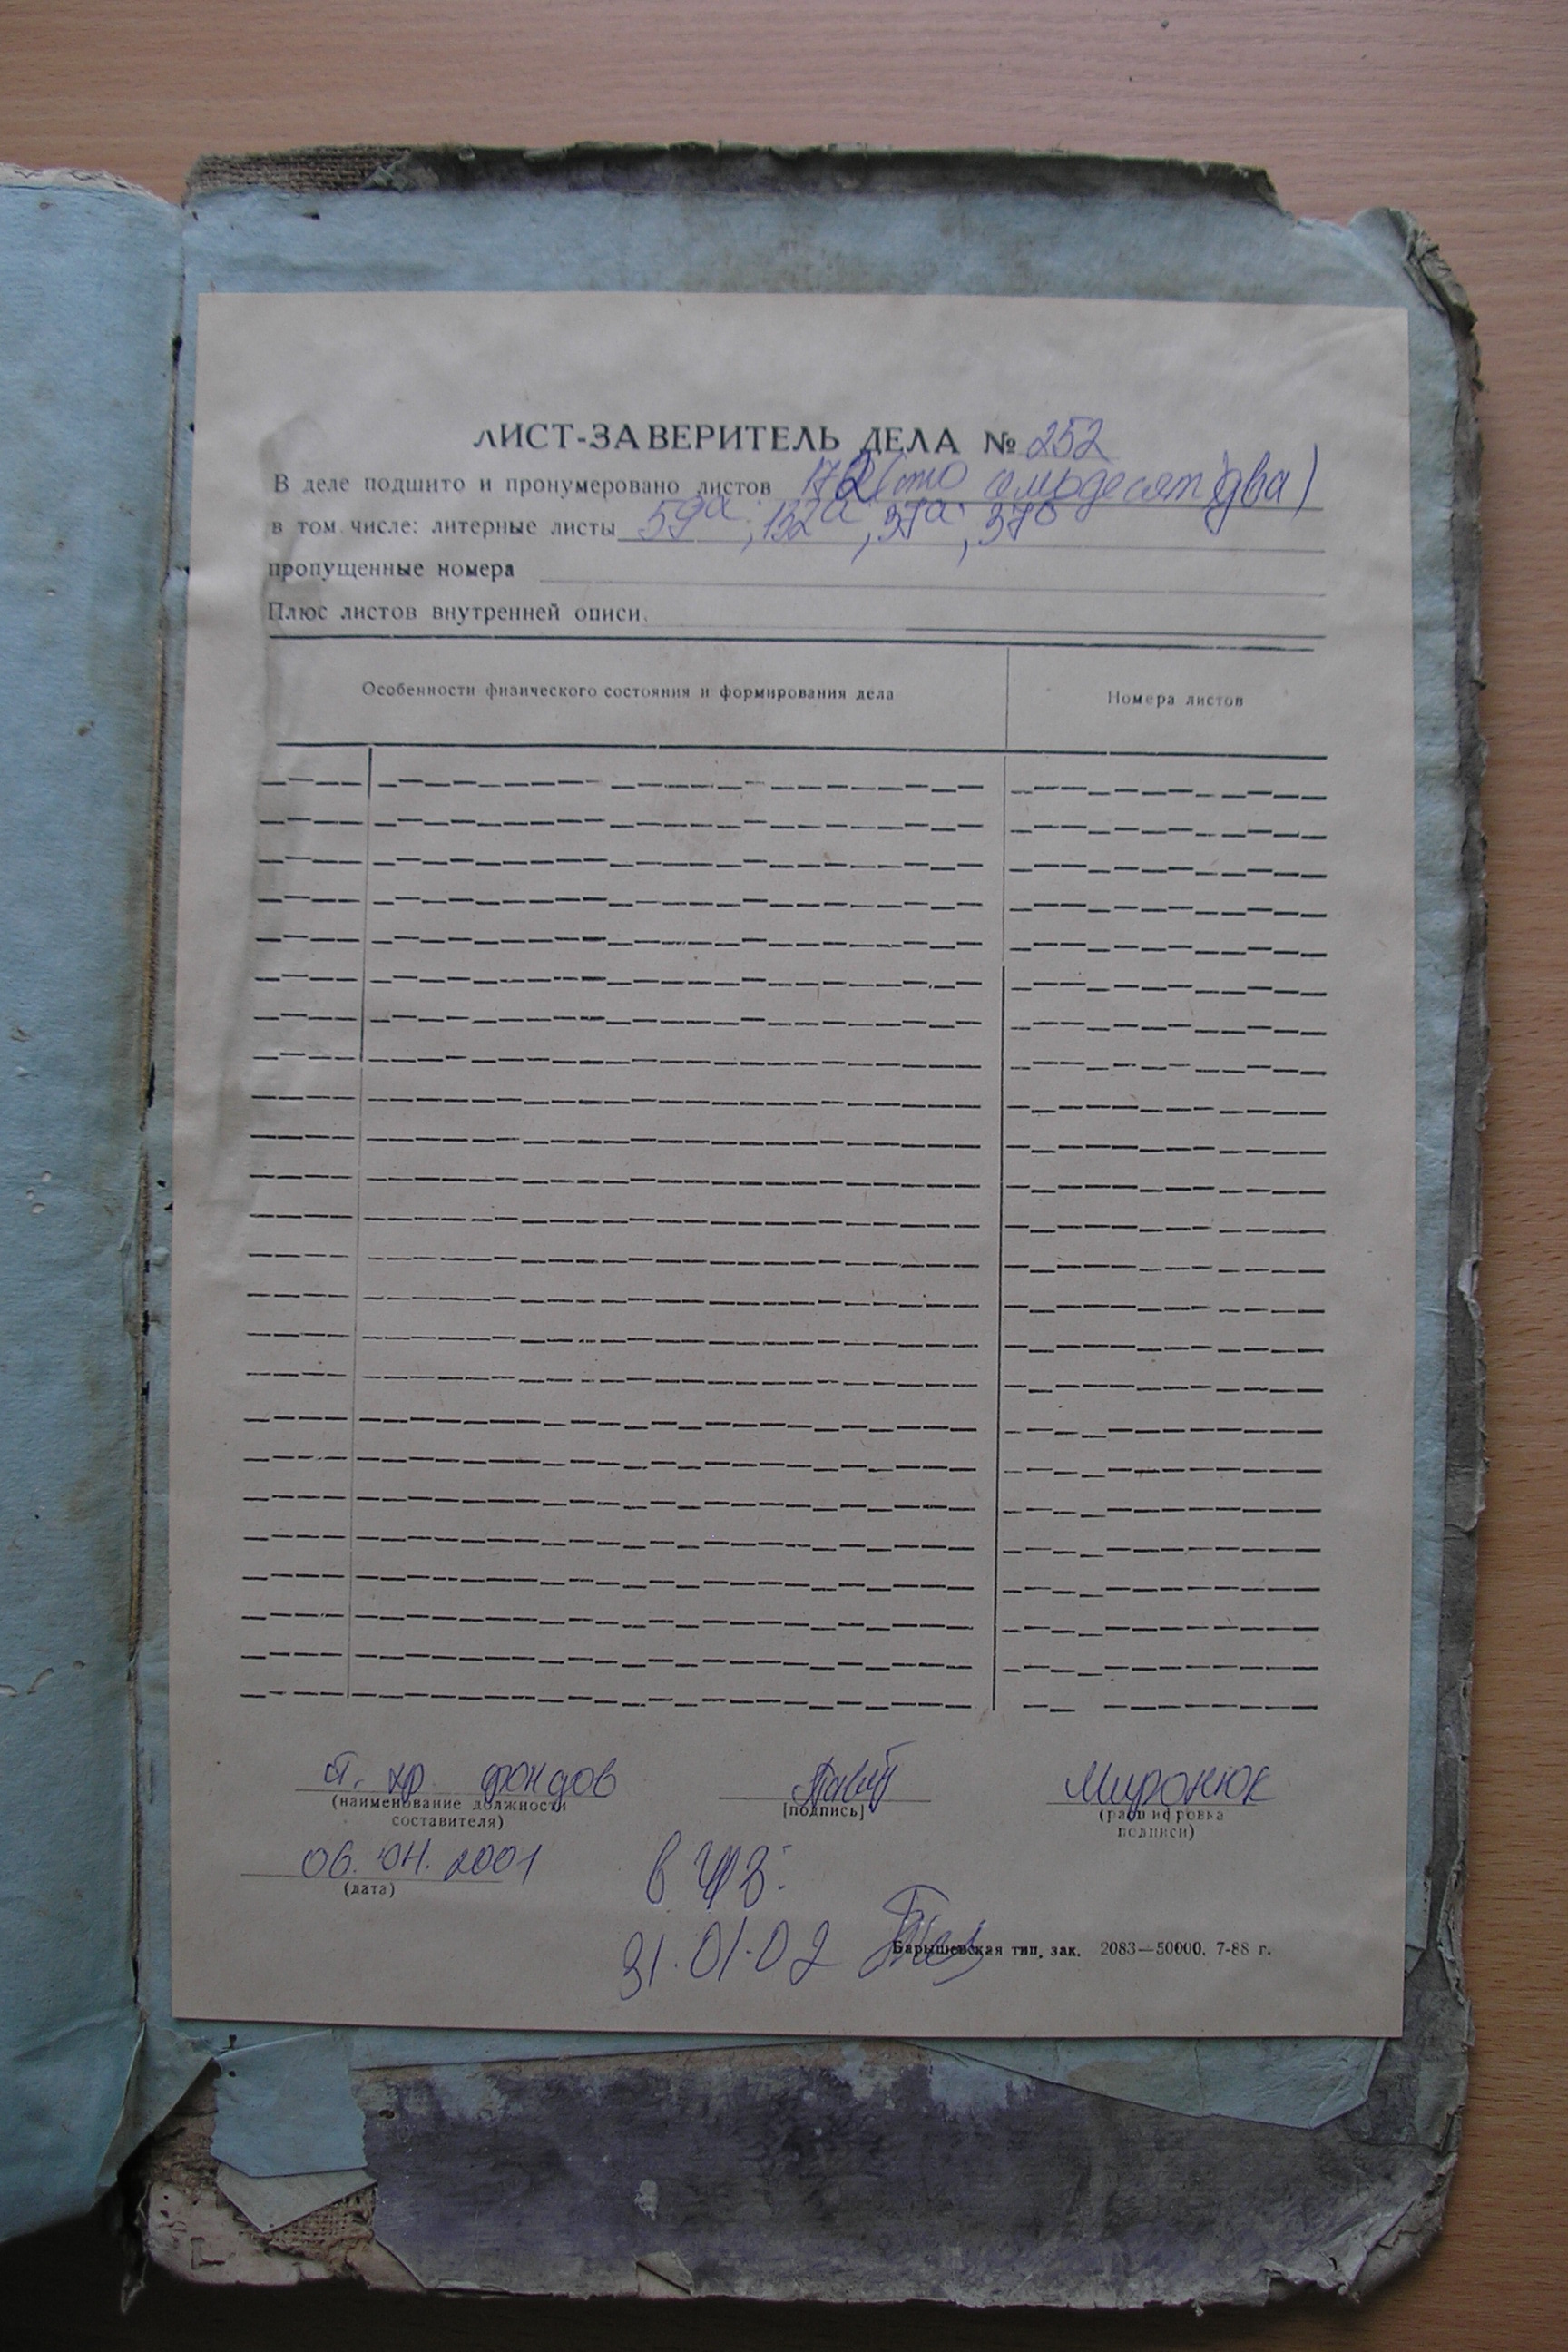 ЛИСТ-ЗАВЕРИТЕЛЬ ДЕЛА № 252
В деле подшито и пронумеровано листов 172 (сто семьдесят два)
в том числе: литерные листы 59а; 132а; 37а; 37б
пропущенные номера
Плюс листов внутренней описи.
Особенности физического состояния и формирования дела
Номера листов
хр. фондов Миронюк
(наименование должности составителя)
[подпись]
(расшифровка подписи)
06. 04. 2001
(дата)
31.01.02
Барышевская тип. зак. 2083—50000. 7-88 г.